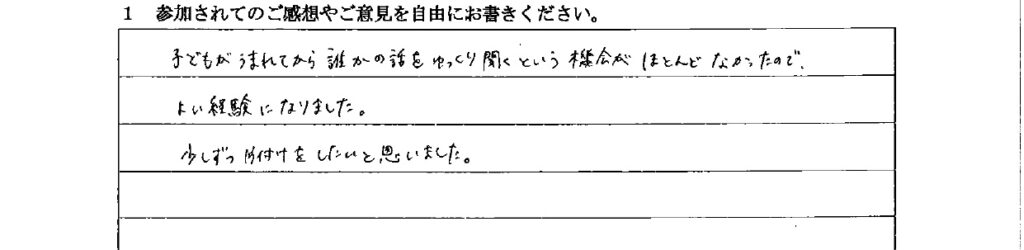 1 参加されてのご感想やご意見を自由にお書きください。
子どもがうまれてから誰かの話をゆっくり聞くという機会がほとんどなかったので、
よい経験になりました。
少しずつ片付けをしたいと思いました。